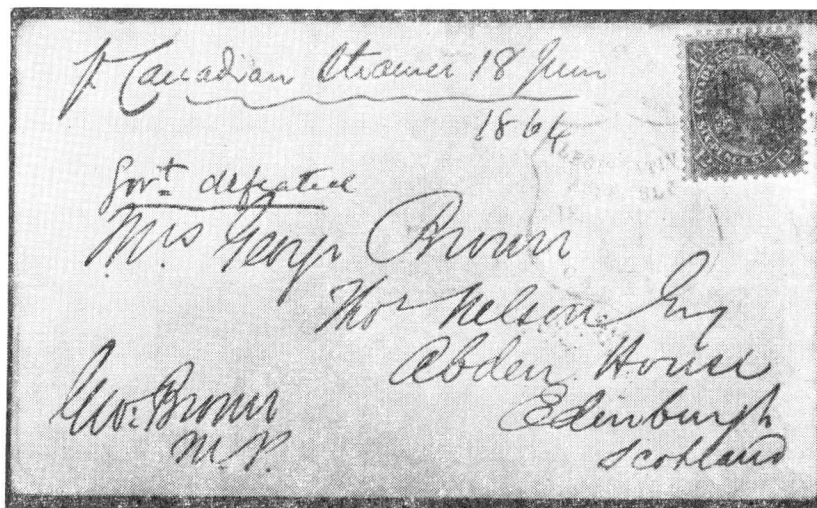 pr Canadian Steamer 18 June
1864
Govt defeated
Mrs George Brown
Thos Nelson Esq
Abden House
Edinburgh
Scotland
Geo: Brown
M.P.